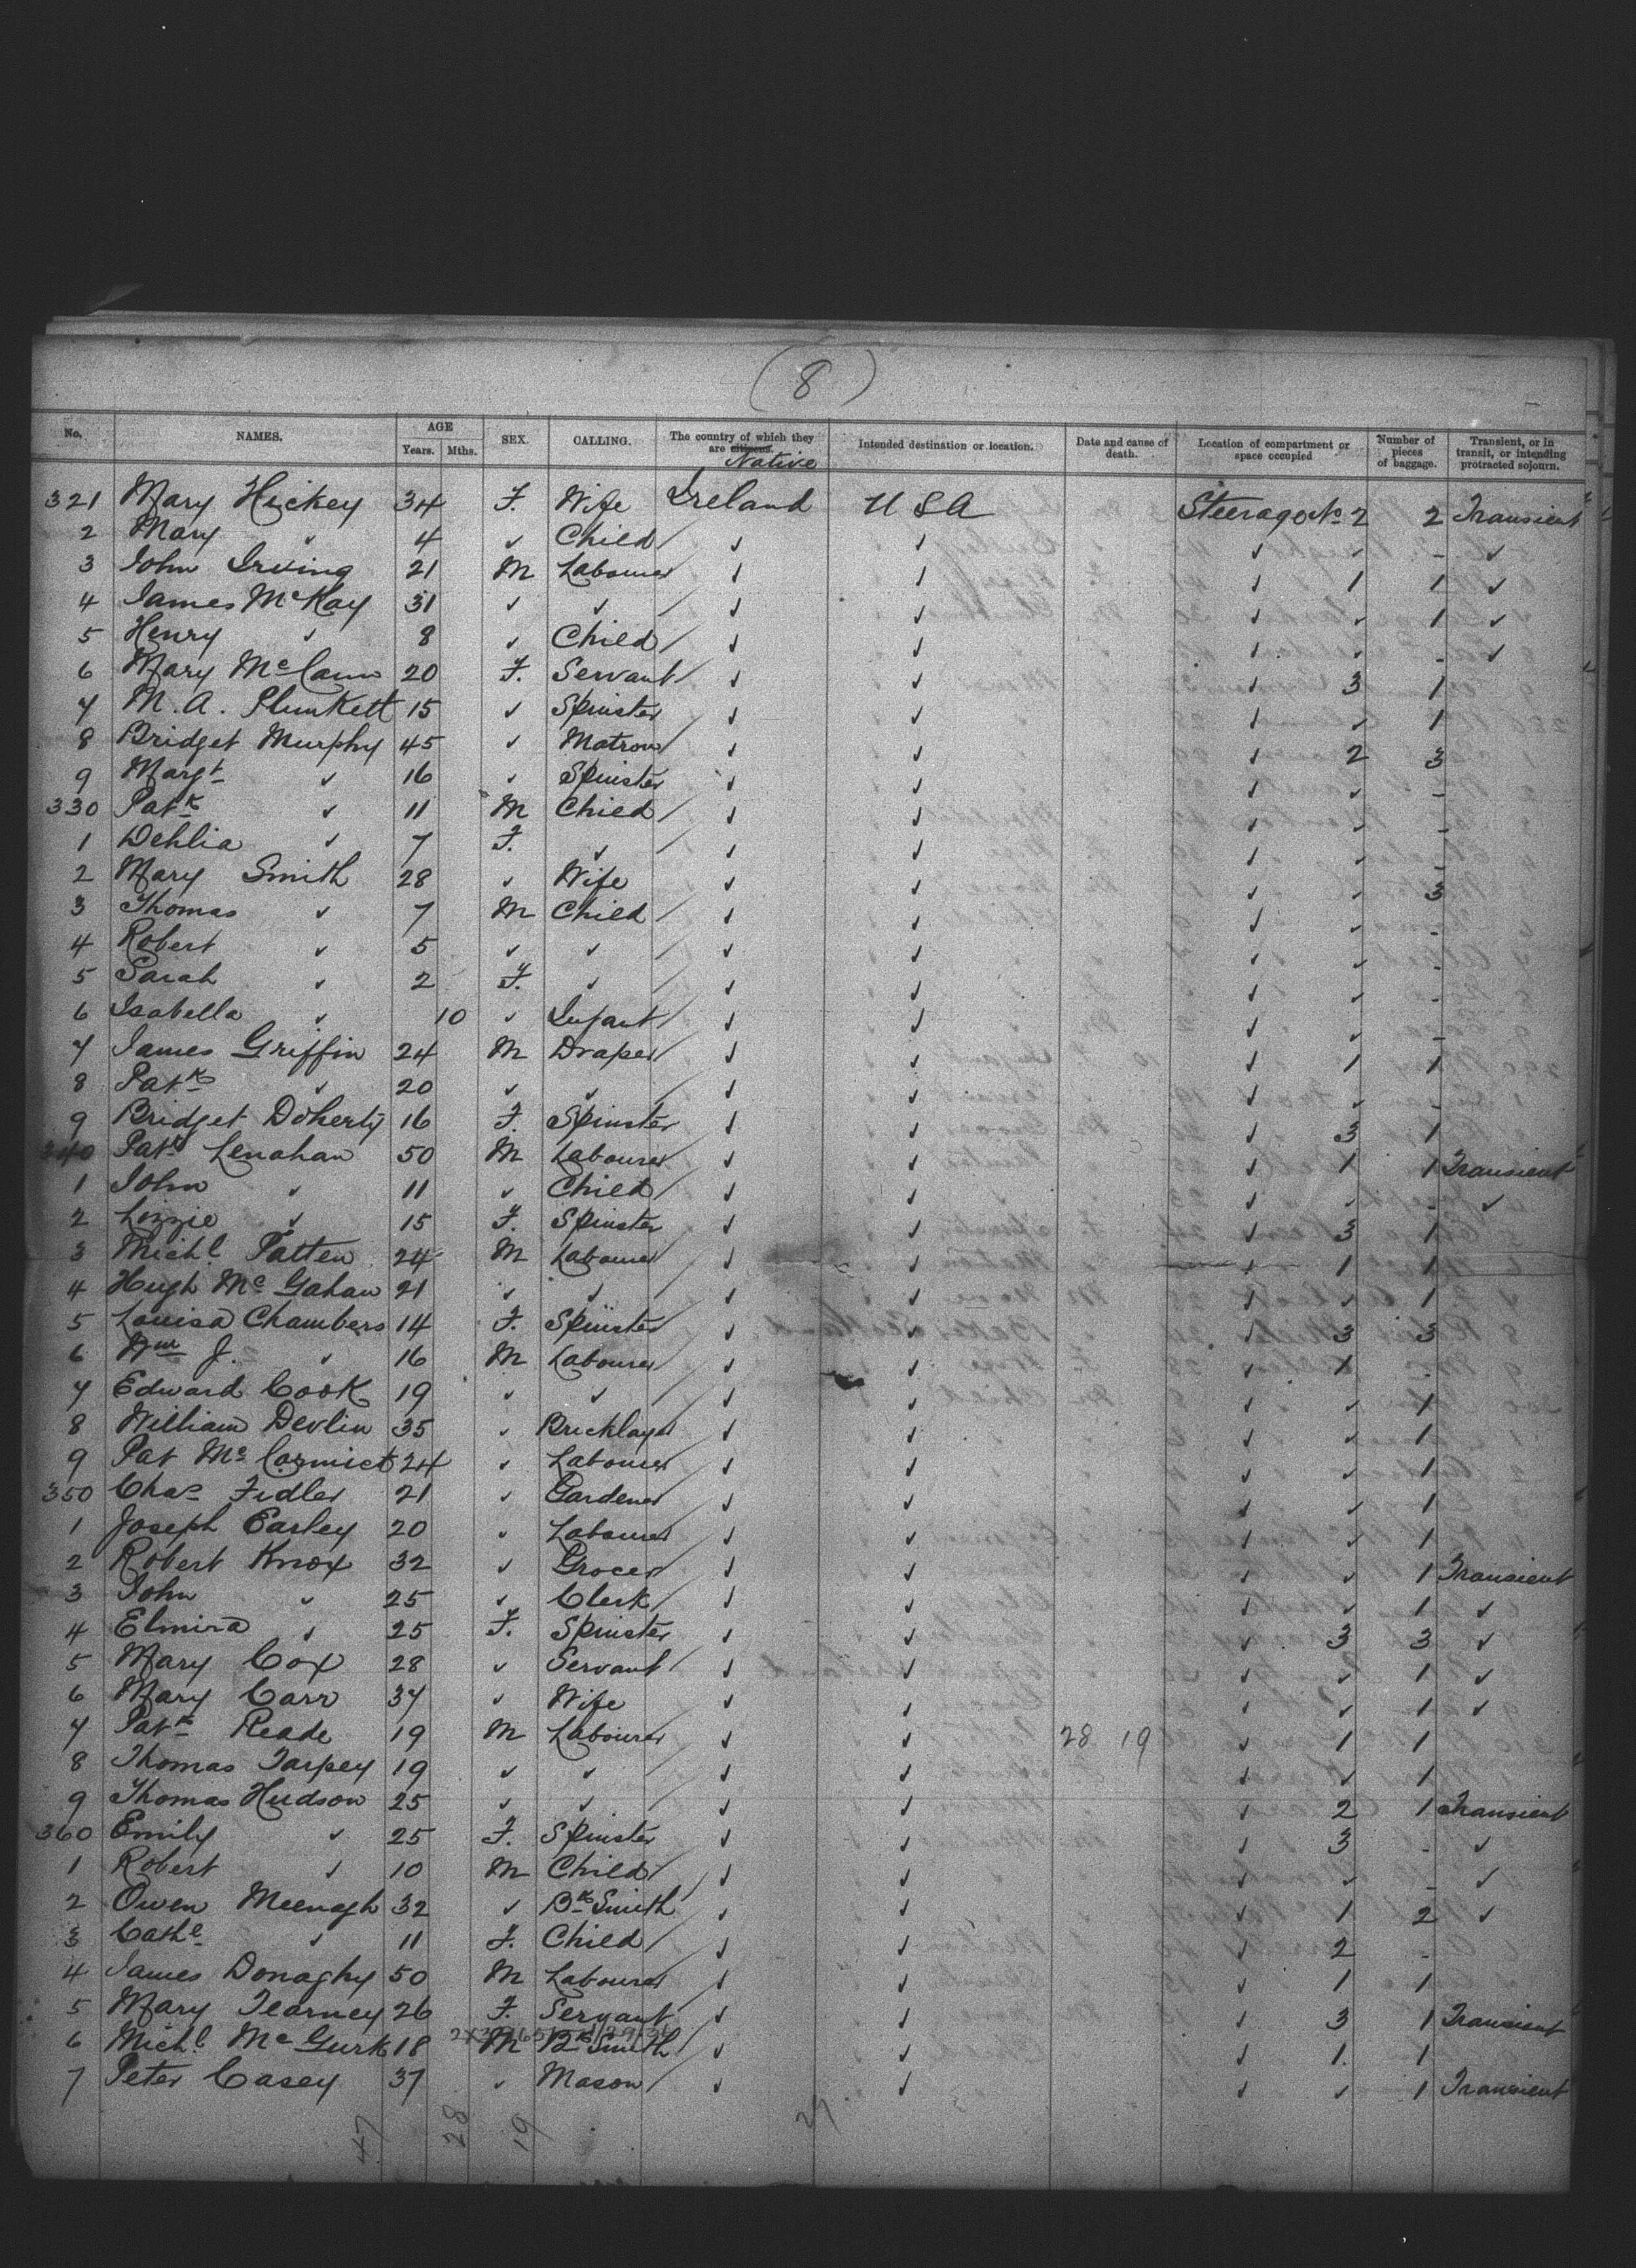 (8)
No. NAMES. AGE Years. Mths. SEX. CALLING. The country of which they are citizens. Native Intended destination or location. Date and cause of death. Location of compartment or space occupied Number of pieces of baggage. Transient, or in transit, or intending protracted sojourn.
321 Mary Hickey 34 F. Wife Ireland U S A Steerage No 2 2 Transient
2 Mary ✓ 4 ✓ Child / ✓ ✓ ✓ ✓ - ✓
3 John Irving 21 M Labourer / ✓ ✓ ✓ 1 1 ✓
4 James McKay 31 ✓ ✓ / ✓ ✓ ✓ ✓ 1 ✓
5 Henry ✓ 8 ✓ Child / ✓ ✓ ✓ ✓ - ✓
6 Mary McCann 20 F. Servant / ✓ ✓ ✓ 3 1
7 M. A. Plunkett 15 ✓ Spinster ✓ ✓ ✓ ✓ 1
8 Bridget Murphy 45 ✓ Matron / ✓ ✓ ✓ 2 3
9 Margt ✓ 16 ✓ Spinster ✓ ✓ ✓ ✓ -
330 Patk ✓ 11 M Child / ✓ ✓ ✓ ✓ -
1 Dehlia ✓ 7 F. ✓ / ✓ ✓ ✓ ✓ -
2 Mary Smith 28 ✓ Wife ✓ ✓ ✓ ✓ 3
3 Thomas ✓ 7 M Child / ✓ ✓ ✓ ✓ -
4 Robert ✓ 5 ✓ ✓ / ✓ ✓ ✓ ✓ -
5 Sarah ✓ 2 F. ✓ / ✓ ✓ ✓ ✓ -
6 Isabella ✓ 10 ✓ Infant / ✓ ✓ ✓ ✓ -
7 James Griffin 24 M Draper / ✓ ✓ ✓ 1 1
8 Patk ✓ 20 ✓ ✓ / ✓ ✓ ✓ ✓ -
9 Bridget Doherty 16 F. Spinster ✓ ✓ ✓ 3 1
340 Patk Lenahan 50 M Labourer / ✓ ✓ ✓ 1 1 Transient
1 John ✓ 11 ✓ Child / ✓ ✓ ✓ ✓ - ✓
2 Lizzie ✓ 15 F. Spinster ✓ ✓ ✓ 3 1
3 Michl Patten 24 M Labourer / ✓ ✓ ✓ 1 1
4 Hugh McGahan 21 ✓ ✓ / ✓ ✓ ✓ ✓ 1
5 Louisa Chambers 14 F. Spinster / ✓ ✓ ✓ 3 3
6 Wm J. ✓ 16 M Labourer / ✓ ✓ ✓ 1 -
7 Edward Cook 19 ✓ ✓ / ✓ ✓ ✓ ✓ 1
8 William Devlin 35 ✓ Bricklayer / ✓ ✓ ✓ ✓ 1
9 Pat McCormick 24 ✓ Labourer / ✓ ✓ ✓ ✓ 1
350 Chas Fidler 21 ✓ Gardener / ✓ ✓ ✓ ✓ 1
1 Joseph Earley 20 ✓ Labourer / ✓ ✓ ✓ ✓ 1
2 Robert Knox 32 ✓ Grocer / ✓ ✓ ✓ ✓ 1 Transient
3 John ✓ 25 ✓ Clerk / ✓ ✓ ✓ ✓ 1 ✓
4 Elmira ✓ 25 F. Spinster ✓ ✓ ✓ 3 3 ✓
5 Mary Cox 28 ✓ Servant / ✓ ✓ ✓ ✓ 1 ✓
6 Mary Carr 37 ✓ Wife ✓ ✓ ✓ ✓ 1 ✓
7 Patk Reade 19 M Labourer / ✓ ✓ 28 19 ✓ 1 1
8 Thomas Tarpey 19 ✓ ✓ / ✓ ✓ ✓ ✓ 1
9 Thomas Hudson 25 ✓ ✓ / ✓ ✓ ✓ 2 1 Transient
360 Emily ✓ 25 F. Spinster ✓ ✓ ✓ 3 - ✓
1 Robert ✓ 10 M Child / ✓ ✓ ✓ ✓ - ✓
2 Owen Meenagh 32 ✓ Bk Smith ✓ ✓ ✓ 1 2 ✓
3 Cathe ✓ 11 F. Child / ✓ ✓ ✓ 2 -
4 James Donaghy 50 M Labourer / ✓ ✓ ✓ 1 1
5 Mary Tearney 26 F. Servant / ✓ ✓ ✓ 3 1 Transient
6 Michl McGurk 18 M Bk Smith / ✓ ✓ ✓ 1 1
7 Peter Casey 37 ✓ Mason / ✓ ✓ ✓ ✓ 1 Transient
47 28 19